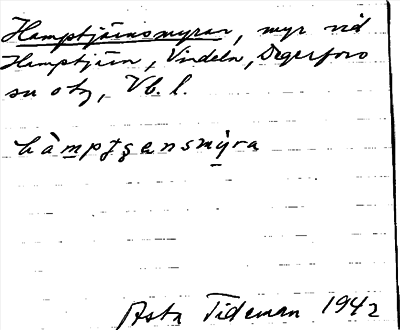 Hamptjärnsmyran, myr vid
Hamptjärn, Vindeln, Degerfors
sn o tg, Vb. l.
hàmptʂænsmỳra
Asta Tideman 1942